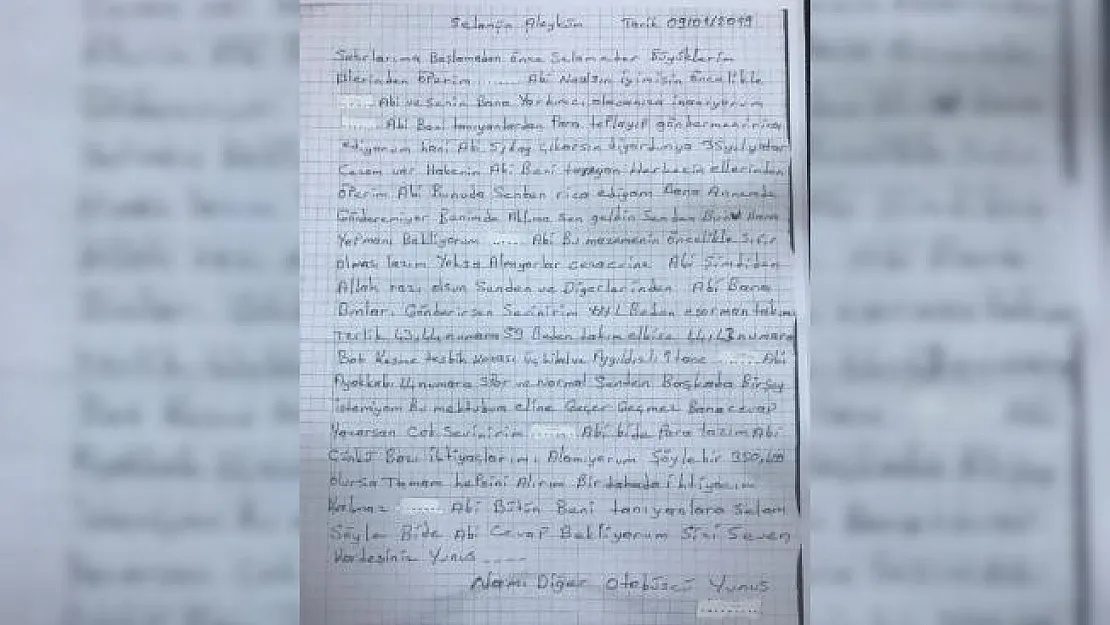 Selamün Aleyküm Tarih 09/01/2019
Satırlarıma Başlamadan önce Selameder Büyüklerin
Ellerinden öperim ...... Abi Nasılsın iyimisin öncelikle
Abi ve senin Bana Yardımcı olacanıza inanıyorum
Abi Beni tanıyanlardan Para toplayıp göndermeni rica
ediyorum hani Abi 5,6ay çıkarsın diyordunya 35yıl yatar
Cezam var Hakenin Abi Beni tanıyan Herkezin ellerinden
öperim Abi Bunuda Senden rica ediyom Bana Annemde
Gönderemiyor Banımda Aklıma sen geldin Senden Bunu Bana
Yapmanı Bekliyorum ...... Abi Bu malzemenin öncelikle sıfır
olması lazım Yoksa Almıyorlar cezaevine Abi Şimdiden
Allah razı olsun Senden ve Diğerlerinden Abi Bana
Bunları Gönderirsen Sevinirim Beden eşorman takımı
Terlik 43,44 numara 59 Beden takım elbise 44,43 numara
Bot Kesme tesbih 1tane ...... Abi
Ayakkabı numara spor ve Normal Senden Başkada Birşey
istemiyom Bu mektubum eline Geçer Geçmez Bana cevap
Yazarsan Çok Sevinirim Abi bide Para lazım Abi
Çünkü Bazı ihtiyaçlarımı Alamıyorum Şöyle bir 350,400
olursa Tamam hepsini Alırım Bir dahada ihtiyacım
Kalmaz ...... Abi Bütün Beni tanıyanlara selam
Söyle Bide Abi Cevap Bekliyorum Sizi Seven
Kardeşiniz Yunus ....
Namı Diğer Otobüscü Yunus